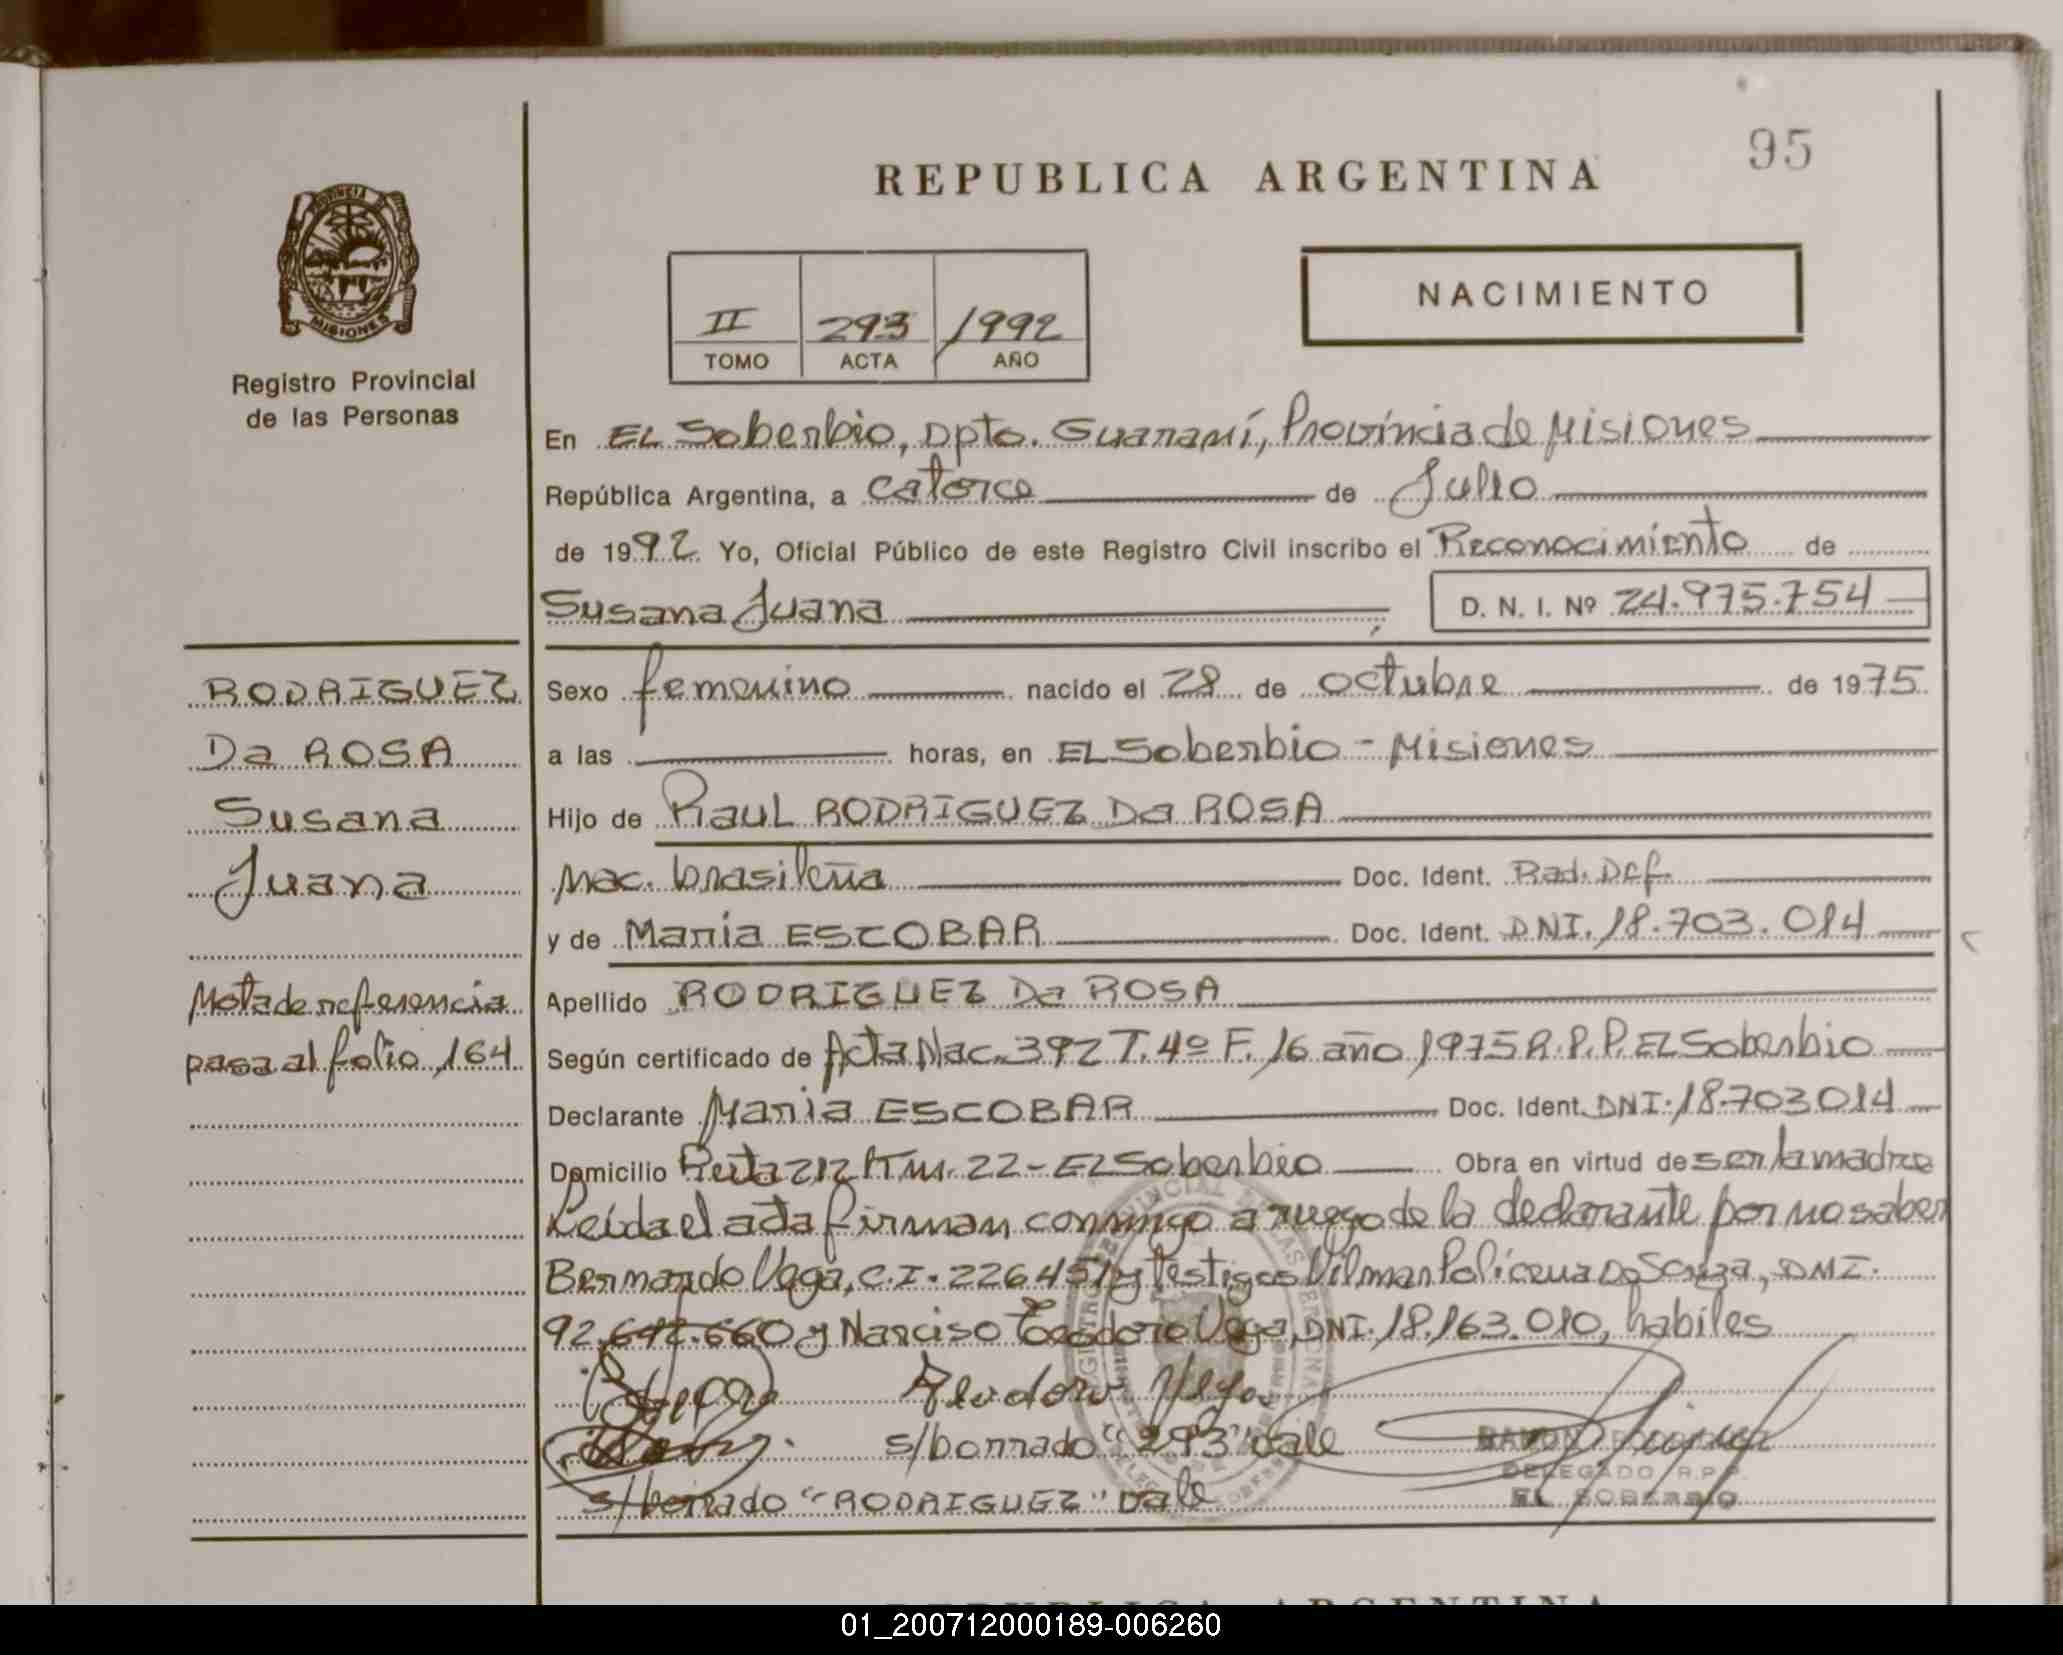 95
REPUBLICA ARGENTINA
NACIMIENTO
II 293 1992
TOMO ACTA AÑO
MISIONES
Registro Provincial
de las Personas
En EL Soberbio, Dpto. Guaraní, Província de Misiones
República Argentina, a catorce de Julio
de 1992 Yo, Oficial Público de este Registro Civil inscribo el Reconocimiento de
Susana Juana D. N. I. Nº 24.975.754
RODRIGUEZ
Da ROSA
Susana
Juana
Nota de referencia
pasa al folio 164
Sexo femenino nacido el 28 de octubre de 1975
a las horas, en EL Soberbio - Misiones
Hijo de Raul RODRIGUEZ Da ROSA
Nac. brasileña Doc. Ident. Rad. Def.
y de Maria ESCOBAR Doc. Ident. DNI. 18.703.014
Apellido RODRIGUEZ Da ROSA
Según certificado de Acta Nac. 392 T. 4º F. 16 año 1975 R.P.P. EL Soberbio
Declarante Maria ESCOBAR Doc. Ident. DNI. 18.703014
Domicilio Ruta 212 Km. 22 - EL Soberbio Obra en virtud de ser la madre
Leída el acta firman conmigo a ruego de la declarante por no saber
Bernardo Vega, C.I. 226.451 y testigos Vilmar Da Souza, DNI.
92.642.660 y Narciso Teodoro Vega, DNI. 18.163.010, habiles
s/borrado "293" vale
s/borrado "RODRIGUEZ" vale
RAMON RODRIGUEZ
DELEGADO R.P.P.
EL SOBERBIO
REPUBLICA ARGENTINA
01_200712000189-006260